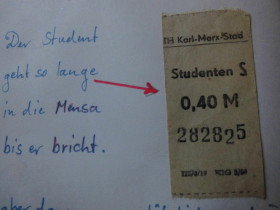 Der Student
geht so lange
in die Mensa
bis er bricht.
TH Karl-Marx-Stadt
Studenten S
0,40 M
282825